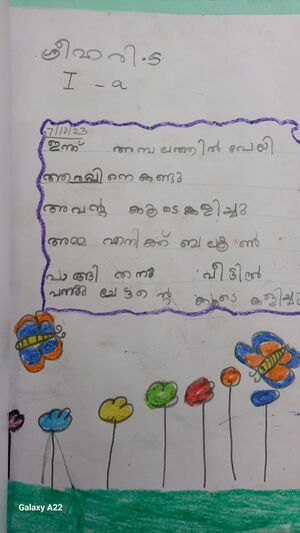 ശ്രീഹരി.S
I - a
7/10/23
ഇന്ന് അമ്പലത്തിൽ പോയി
ആരവിനെ കണ്ടു
അവൻ്റ കൂടെ കളിച്ചു
അമ്മ എനിക്ക് ബലൂൺ
വാങ്ങി തന്നു വീട്ടിൽ
വന്നു ചേട്ടൻ്റെ കൂടെ കളിച്ചു
Galaxy A22